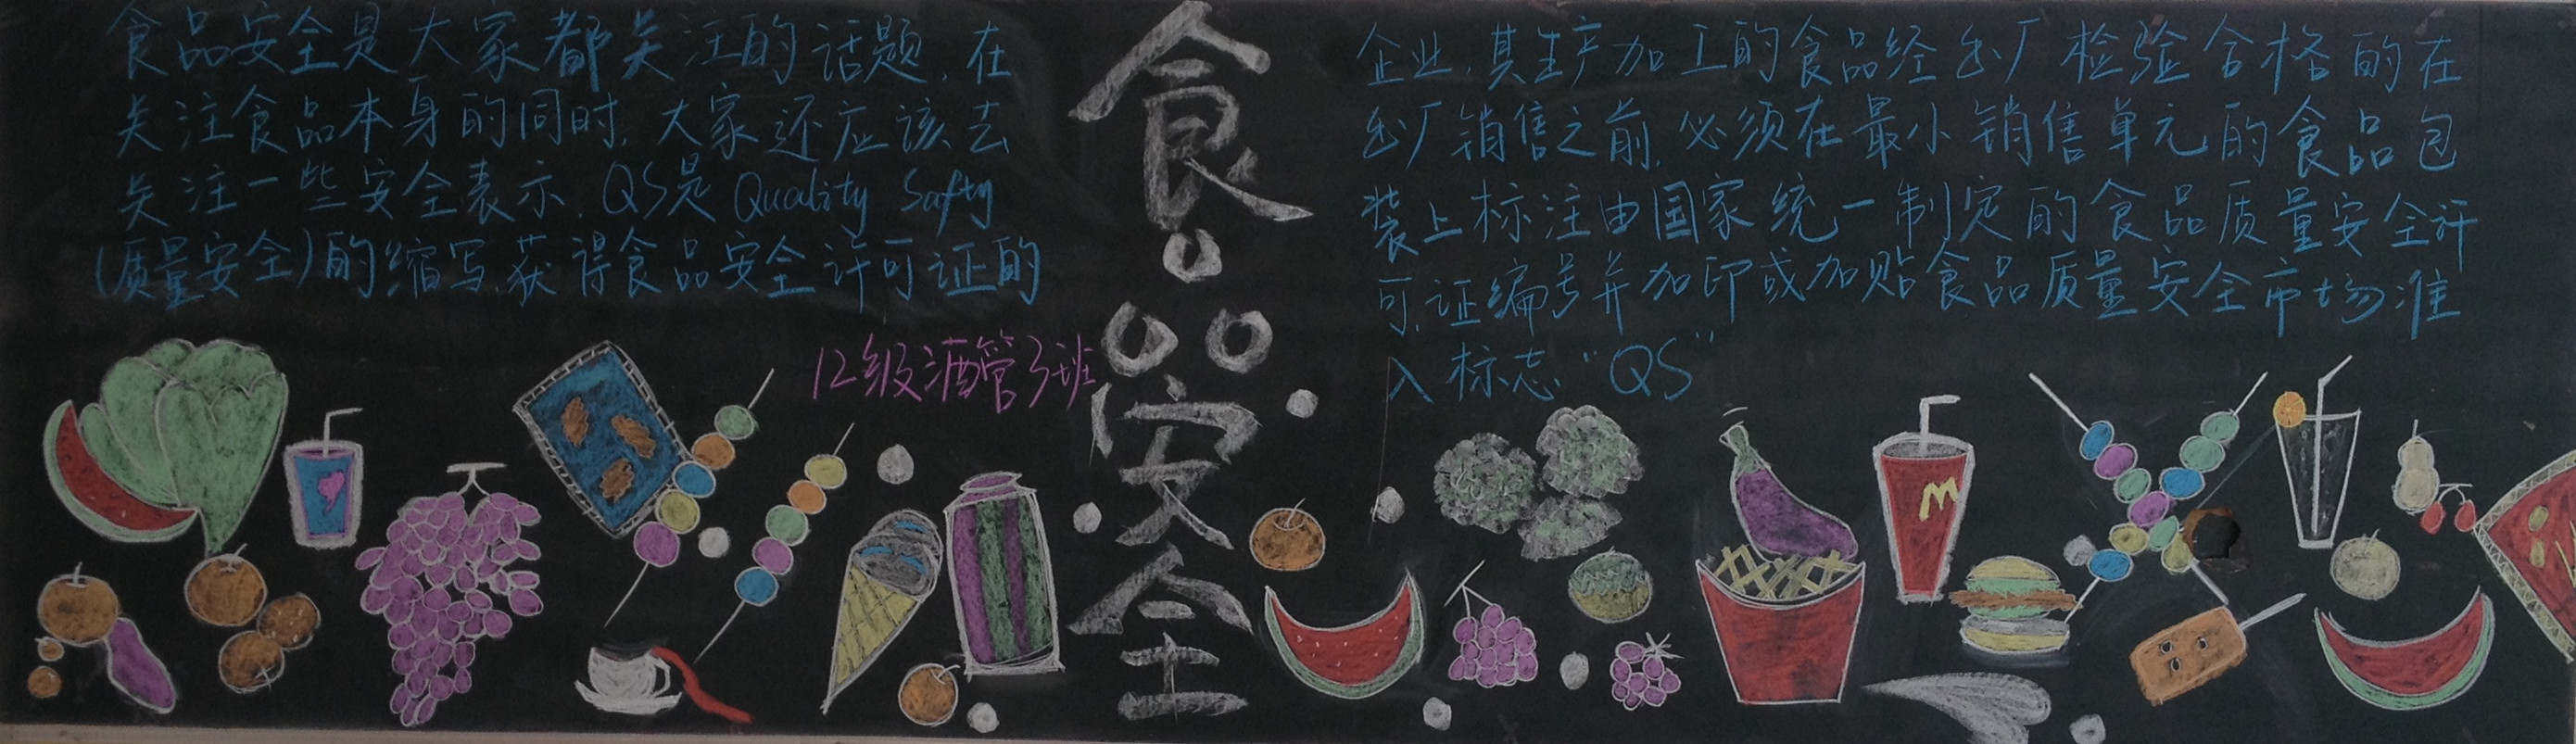 食品安全是大家都关注的话题,在
关注食品本身的同时,大家还应该去
关注一些安全表示,QS是Quality Safty
(质量安全)的缩写,获得食品安全许可证的
12级酒管3班
食品安全
企业,其生产加工的食品经出厂检验合格的在
出厂销售之前,必须在最小销售单元的食品包
装上标注由国家统一制定的食品质量安全许
可证编号并加印或加贴食品质量安全市场准
入标志“QS”
M